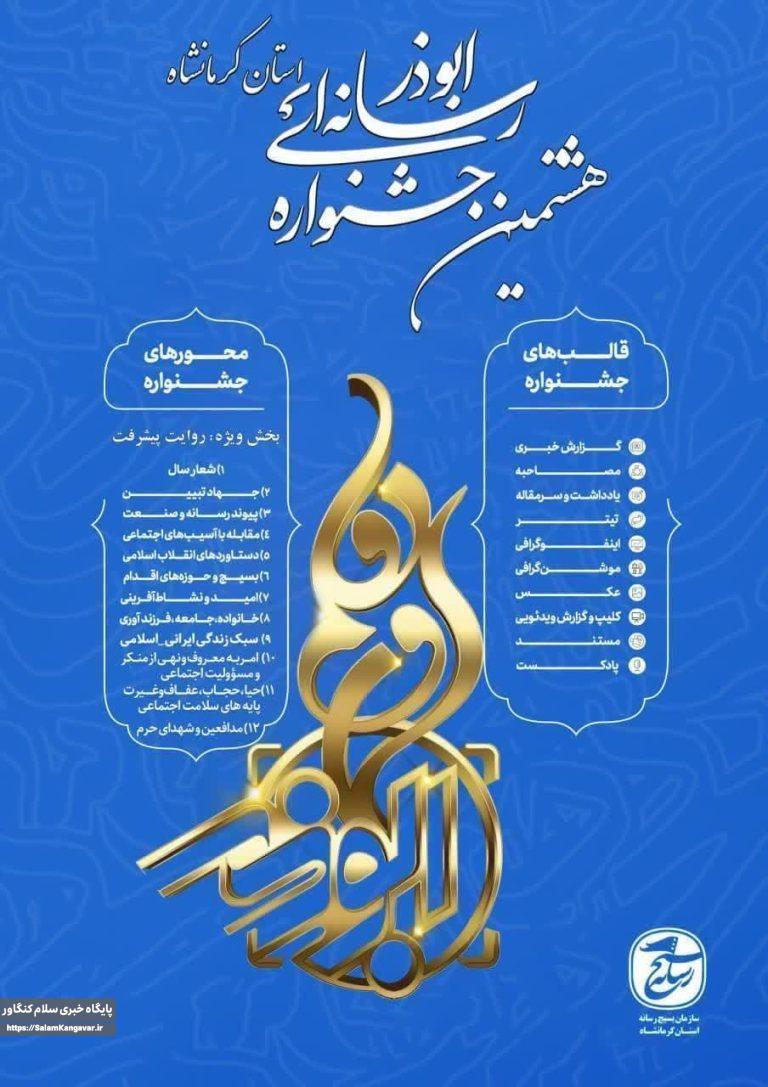 هشتمین جشنواره
رسانه‌ای ابوذر
استان کرمانشاه
قالب‌های
جشنواره
گزارش خبری
مصاحبه
یادداشت و سرمقاله
تیتر
اینفوگرافی
موشن‌گرافی
عکس
کلیپ و گزارش ویدئویی
مستند
پادکست
محورهای
جشنواره
بخش ویژه: روایت پیشرفت
۱) شعار سال
۲) جهاد تبیین
۳) پیوند رسانه و صنعت
۴) مقابله با آسیب‌های اجتماعی
۵) دستاوردهای انقلاب اسلامی
۶) بسیج و حوزه‌های اقدام
۷) امید و نشاط‌آفرینی
۸) خانواده، جامعه، فرزندآوری
۹) سبک زندگی ایرانی_اسلامی
۱۰) امر به معروف و نهی از منکر
و مسؤولیت اجتماعی
۱۱) حیا، حجاب، عفاف و غیرت
پایه های سلامت اجتماعی
۱۲) مدافعین و شهدای حرم
ابوذر
بسیج رسانه
سازمان بسیج رسانه
استان کرمانشاه
پایگاه خبری سلام کنگاور
https://SalamKangavar.ir